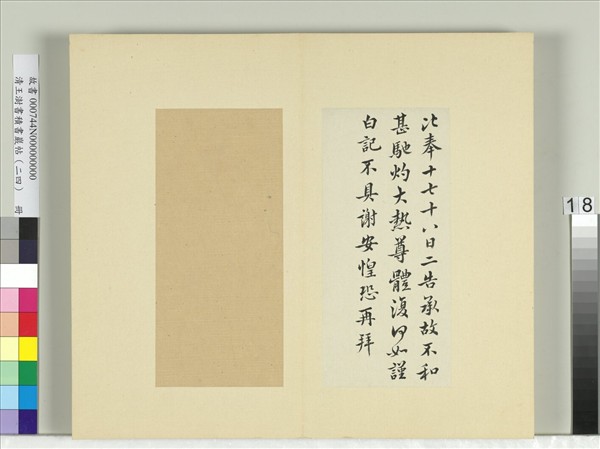 比奉十七十八日二告承故不和
甚馳灼大熱尊體復何如謹
白記不具謝安惶恐再拜
故書 000744N000000000
清王澍書積書巖帖(二四) 冊
18